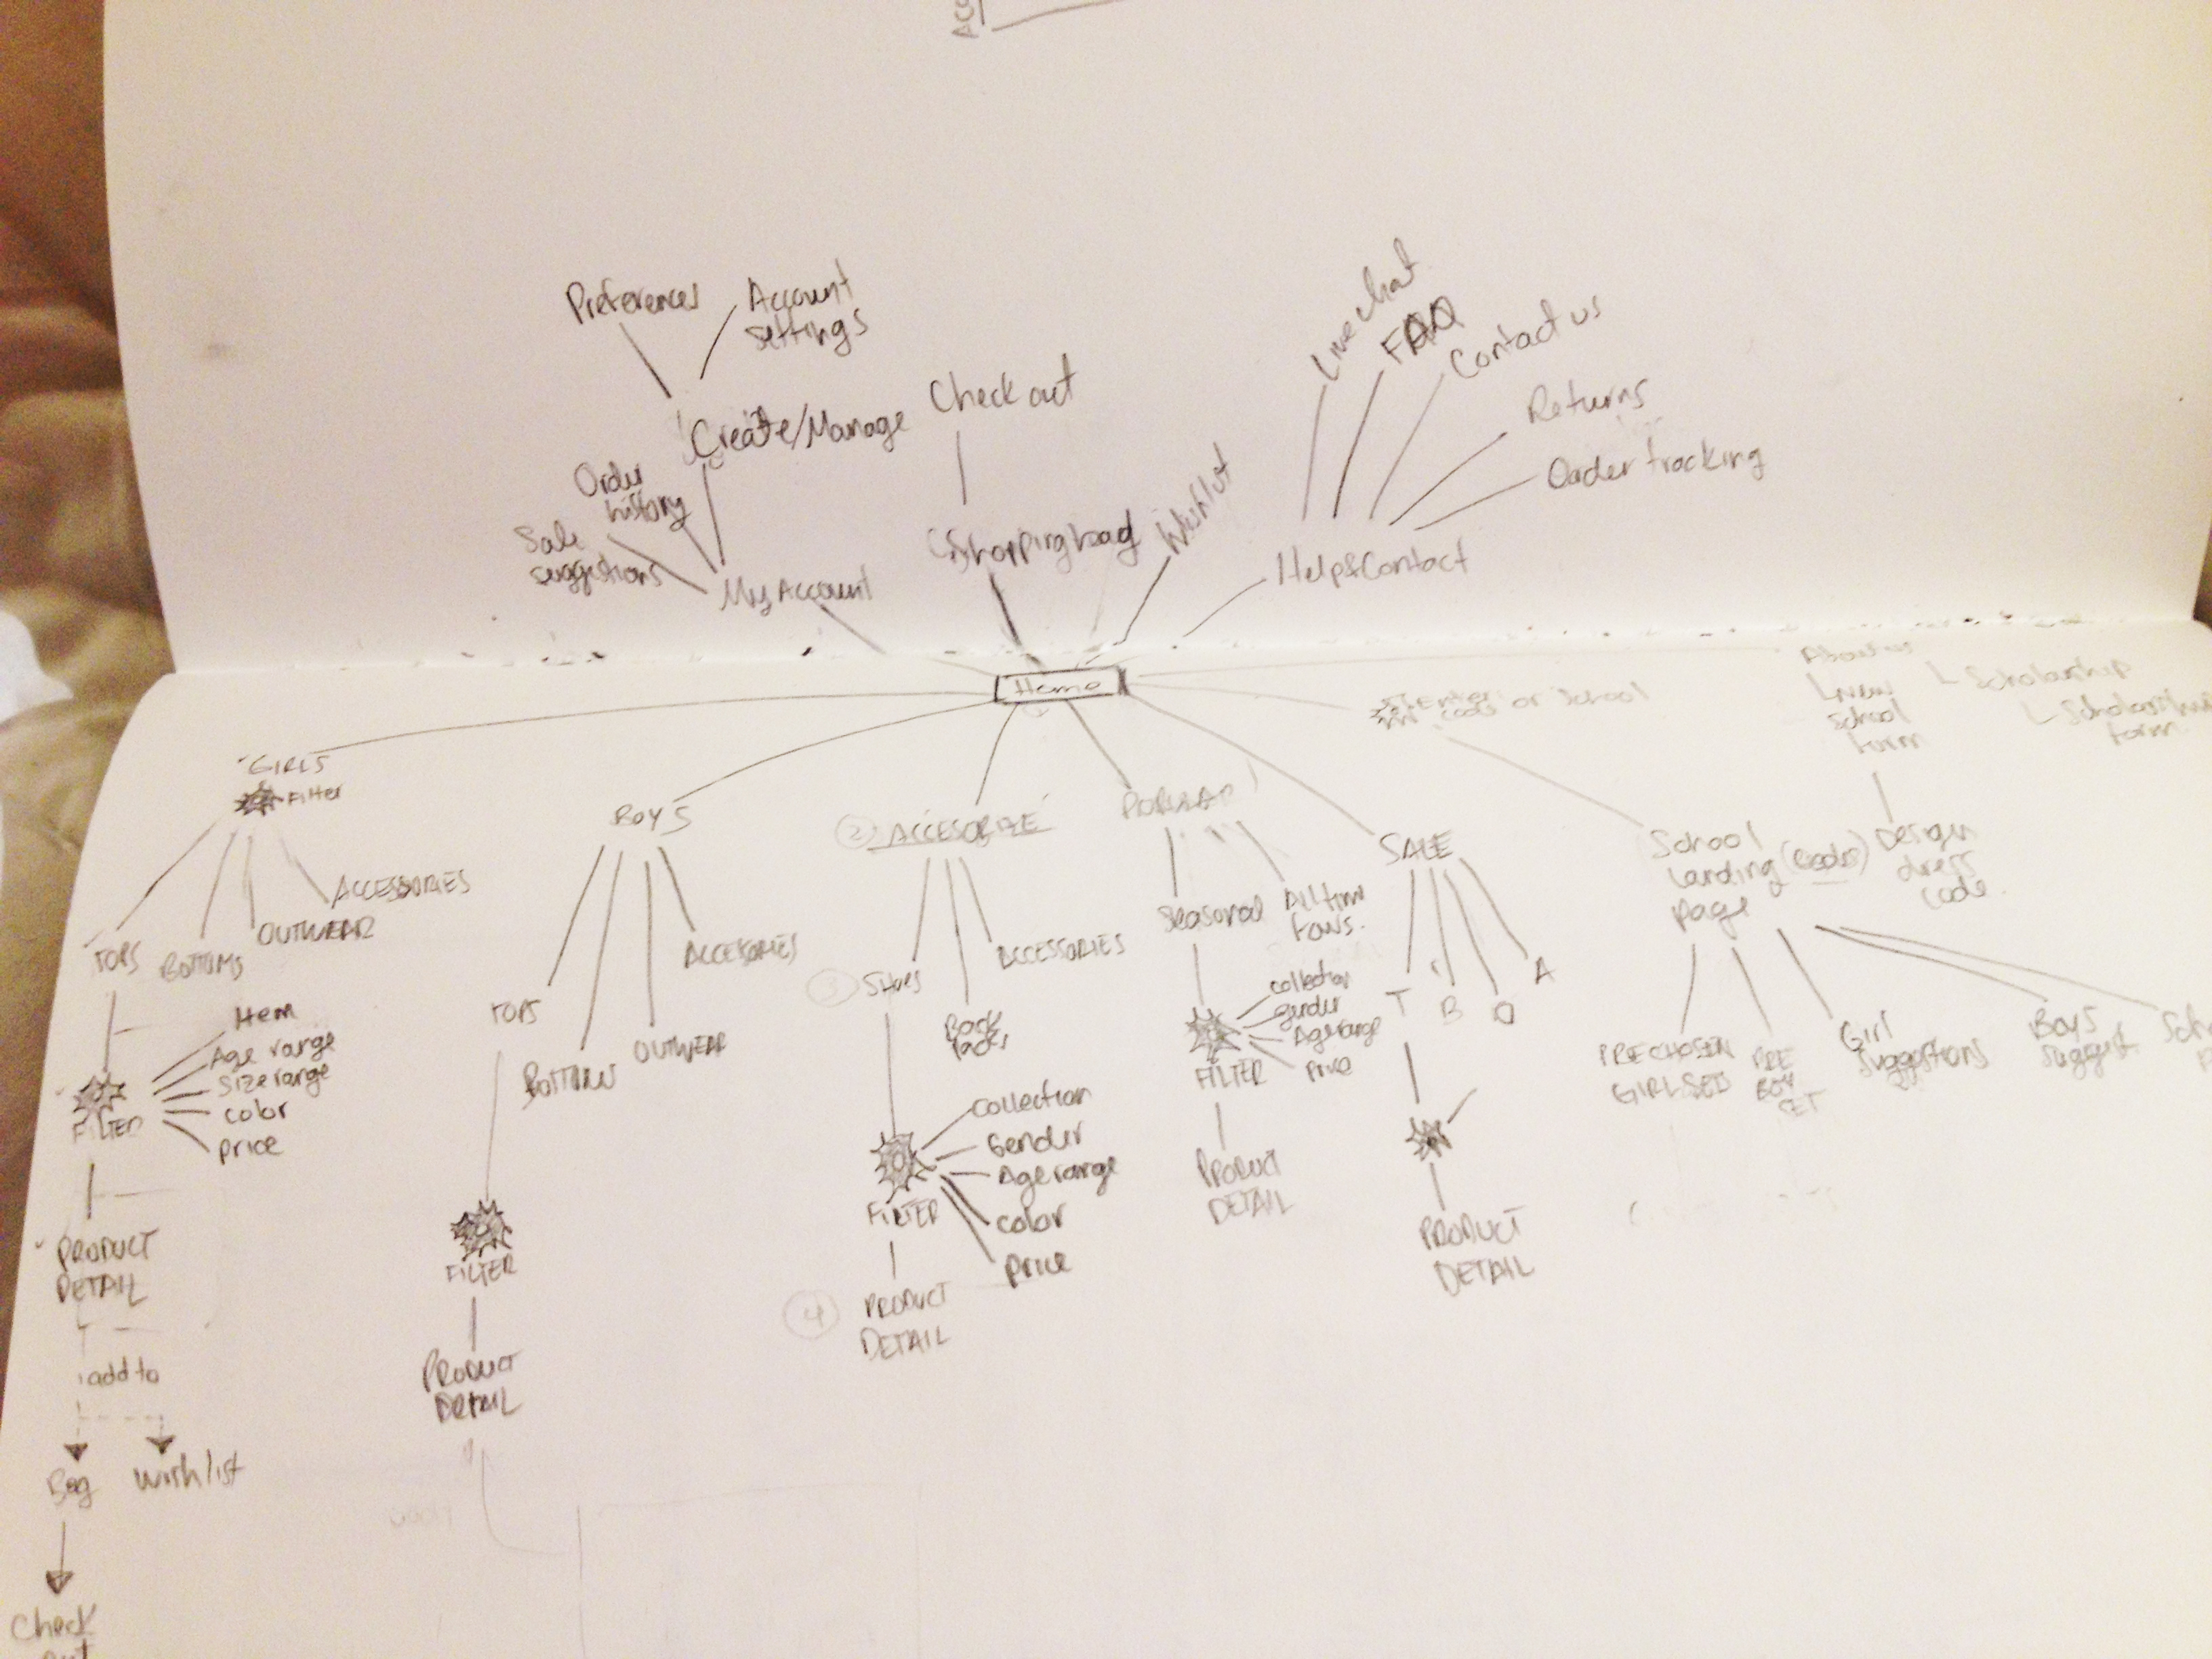 Preferences
Account
settings
Create/Manage
Check out
Order
history
Sale
suggestions
My Account
Shopping bag
Wishlist
Live chat
FAQ
Contact us
Returns
Order tracking
Help&Contact
Home
GIRLS
Filter
TOPS
BOTTOMS
OUTWEAR
ACCESSORIES
Item
Age range
Size range
color
price
FILTER
PRODUCT
DETAIL
add to
Bag
wishlist
Check
out
BOYS
TOPS
BOTTOMS
OUTWEAR
ACCESORIES
FILTER
PRODUCT
DETAIL
2
ACCESORIZE
3
SHOES
Back
Packs
ACCESSORIES
FILTER
Collection
Gender
Age range
color
price
4
PRODUCT
DETAIL
POPULAR
Seasonal
All time
favs.
FILTER
collection
gender
Age range
price
PRODUCT
DETAIL
SALE
T
B
O
A
PRODUCT
DETAIL
Enter
code or School
School
Landing (code)
page
PRE CHOSEN
GIRL SETS
PRE
BOY
SET
Girl
suggestions
Boys
suggest.
About us
New
School
form
Scholarship
Design
dress
code.